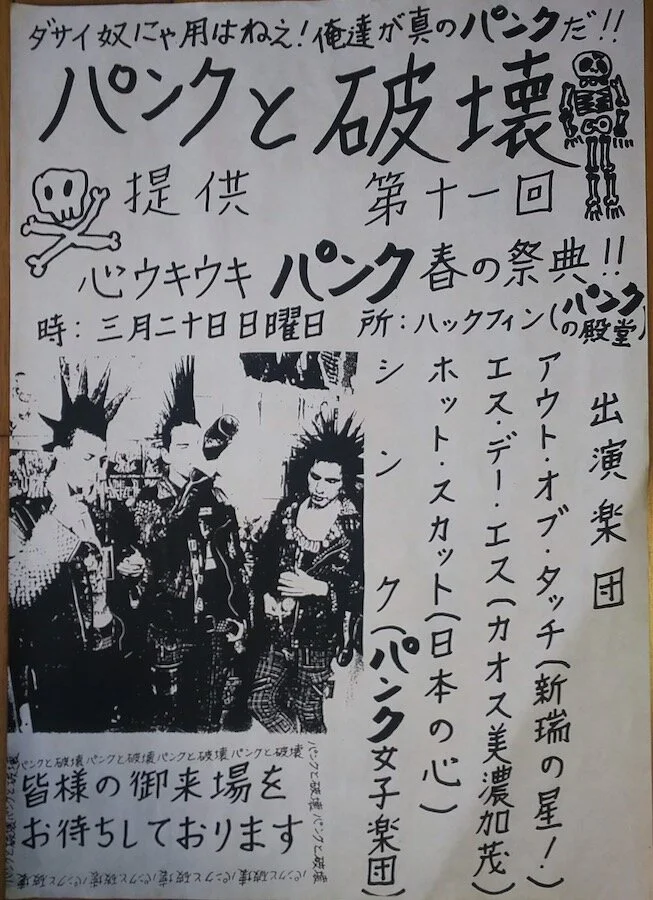 ダサイ奴にゃ用はねえ！俺達が真のパンクだ！！
パンクと破壊
提供 第十一回
心ウキウキ パンク 春の祭典！！
時：三月二十日日曜日 所：ハックフィン（パンクの殿堂）
出演楽団
アウト・オブ・タッチ（新瑞の星！）
エス・デー・エス（カオス美濃加茂）
ホット・スカット（日本の心）
シンク（パンク女子楽団）
パンクと破壊パンクと破壊パンクと破壊パンクと破壊
皆様の御来場を
お待ちしております
パンクと破壊パンクと破壊
パンクと破壊パンクと破壊パンクと破壊パンクと破壊